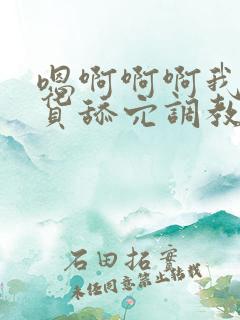 嗯啊啊啊我
舔穴調教
石田拓实
未经同意禁止转载